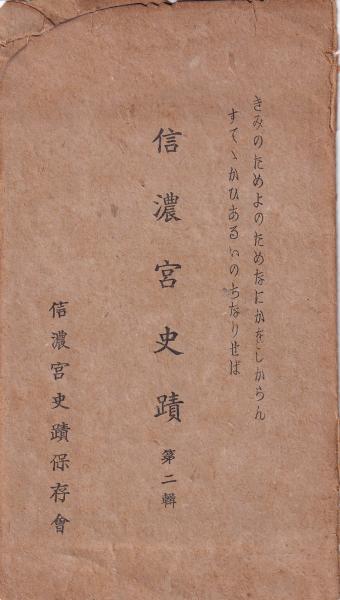 きみのためよのためなにかをしからん
すてゝかひあるいのちなりせば
信濃宮史蹟 第二輯
信濃宮史蹟保存會